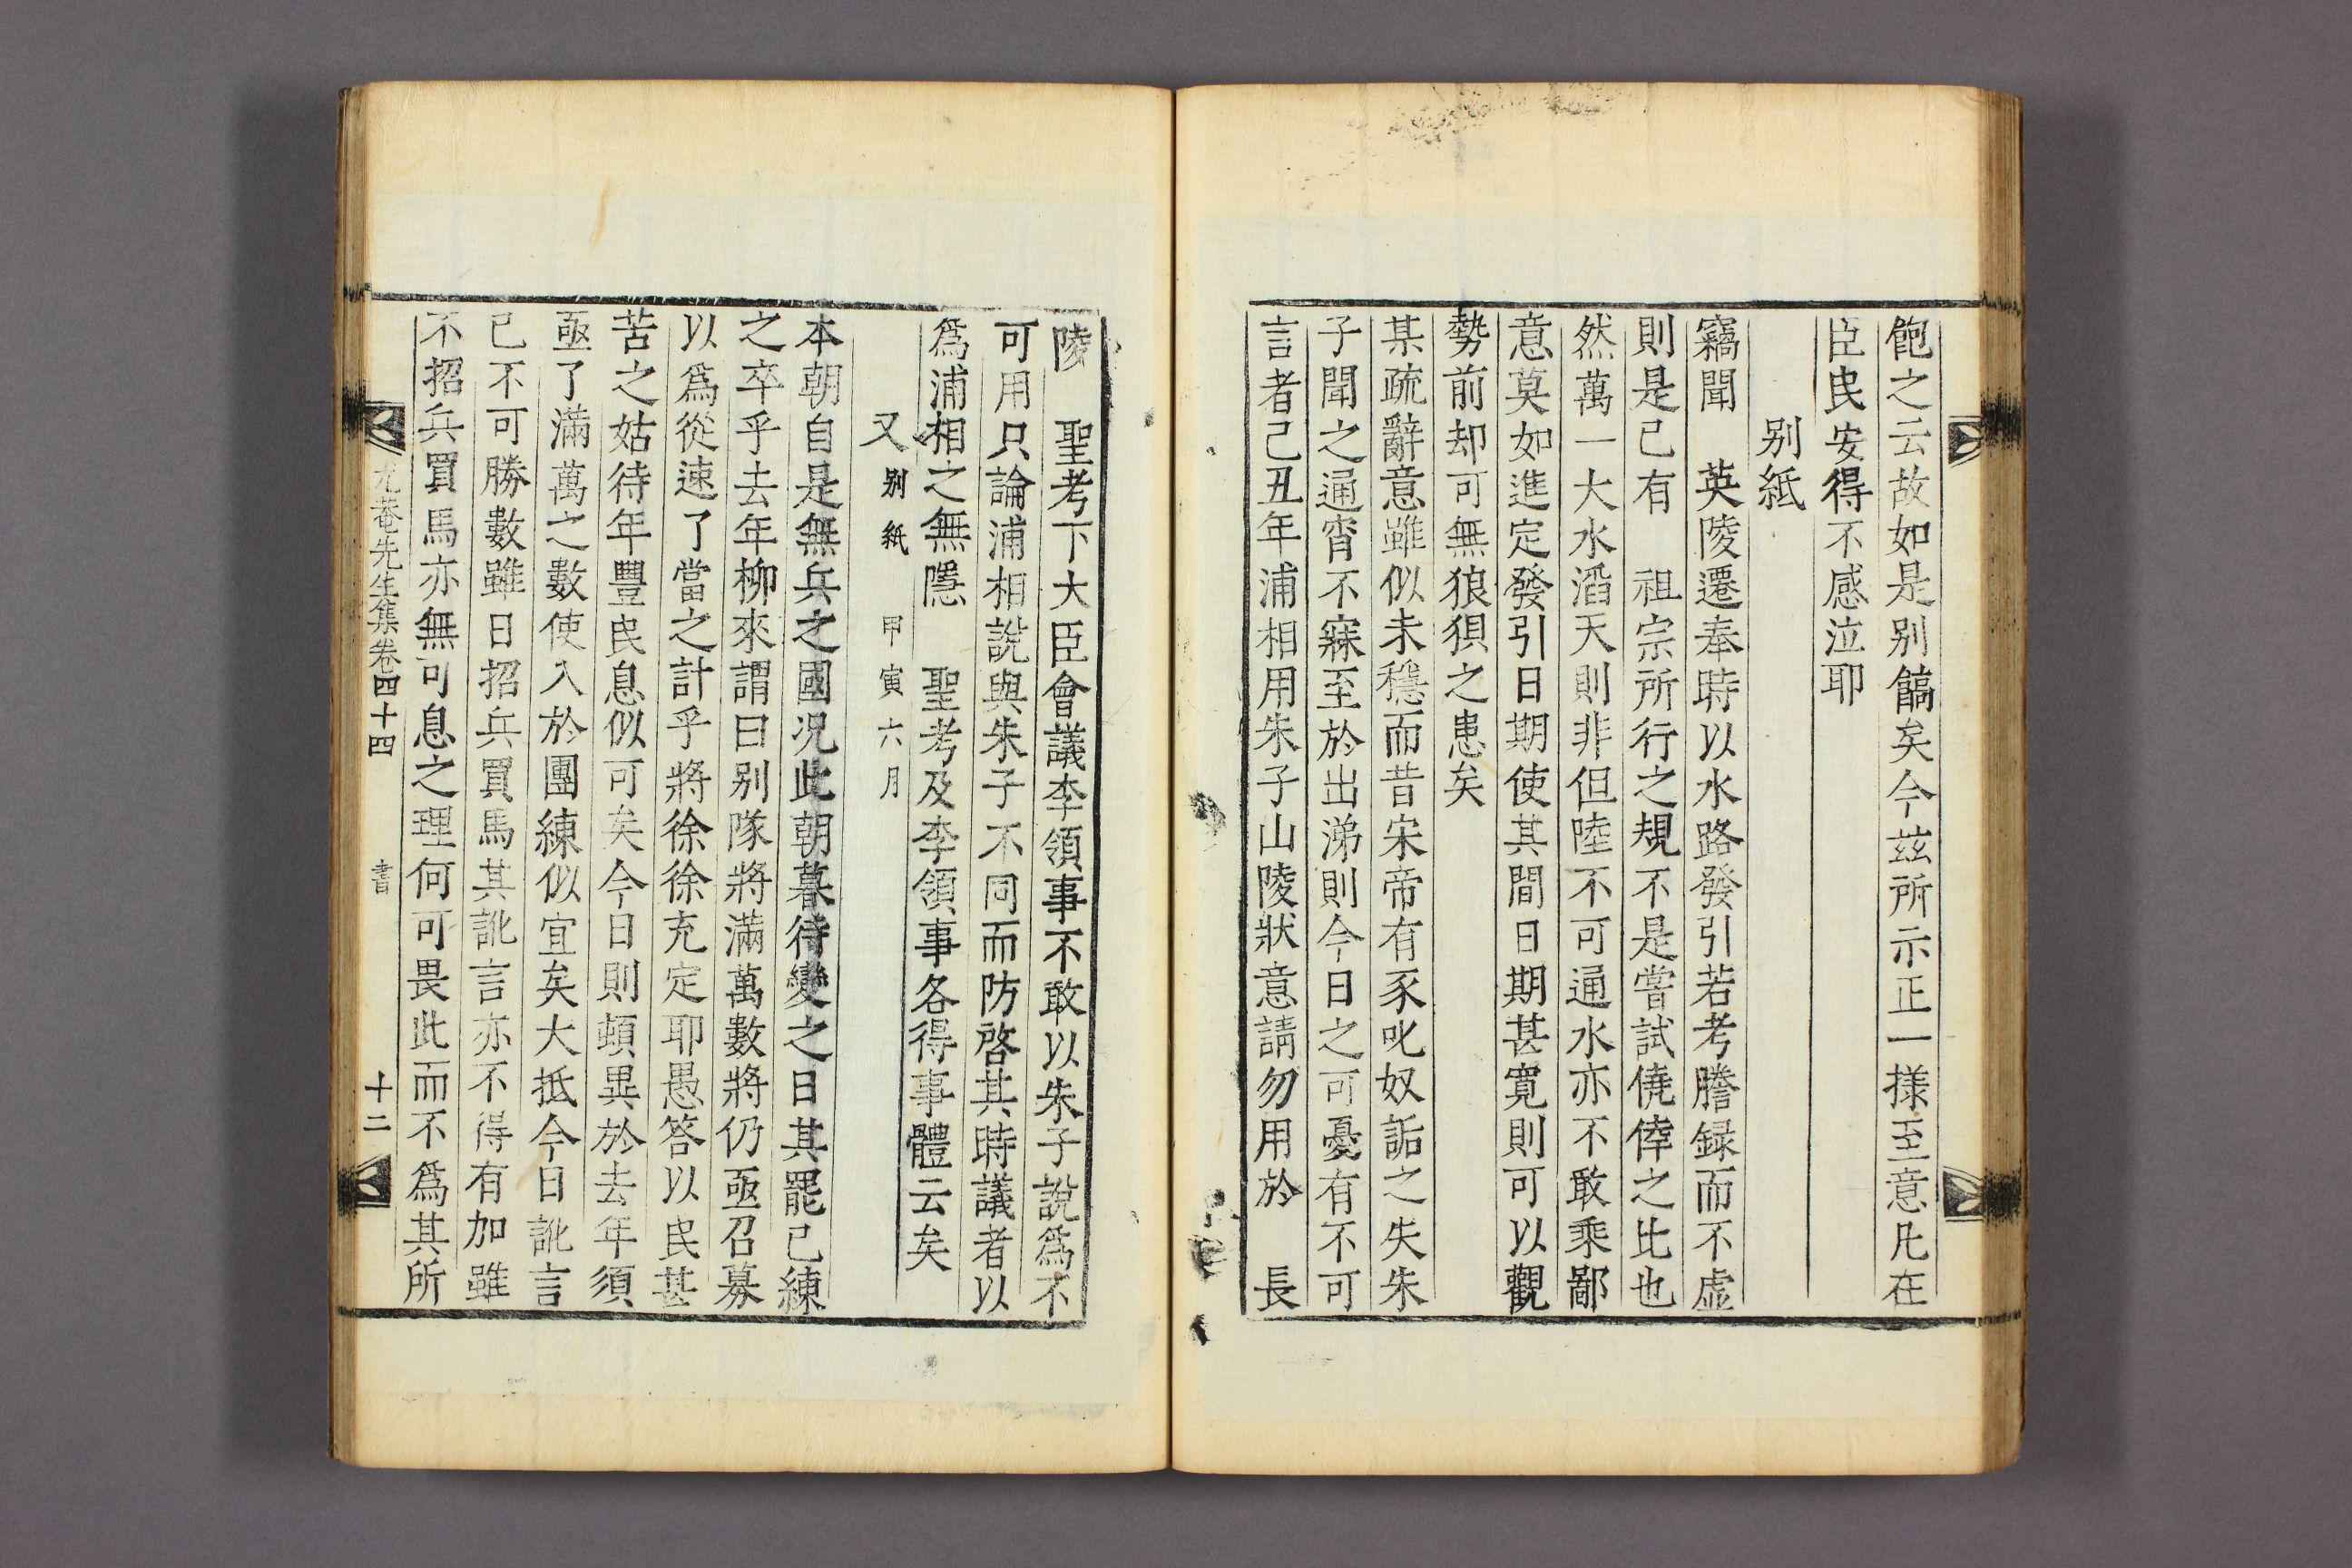 飽之云故如是别饎矣今玆所示正一㨾至意凡在
臣民安得不感泣耶
别紙
竊聞　英陵遷奉時以水路發引若考謄録而不虛
則是已有　祖宗所行之規不是嘗試僥倖之比也
然萬一大水滔天則非但陸不可通水亦不敢乘鄙
意莫如進定發引日期使其間日期甚寬則可以觀
勢前却可無狼狽之患矣
某疏辭意雖似未穩而昔宋帝有豕叱奴詬之失朱
子聞之通宵不寐至於出涕則今日之可憂有不可
言者己丑年浦相用朱子山陵狀意請勿用於　長
陵　聖考下大臣會議李領事不敢以朱子說爲不
可用只論浦相說與朱子不同而防啓其時議者以
爲浦相之無隱　聖考及李領事各得事體云矣
又别紙　甲寅六月
本朝自是無兵之國况此朝暮待變之日其罷已練
之卒乎去年柳來謂曰别隊將滿萬數將仍亟召募
以爲從速了當之計乎將徐徐充定耶愚答以民甚
苦之姑待年豐民息似可矣今日則頓異於去年須
亟了滿萬之數使入於團練似宜矣大抵今日訛言
已不可勝數雖日招兵買馬其訛言亦不得有加雖
不招兵買馬亦無可息之理何可畏此而不爲其所
尤菴先生集卷四十四　書　十二